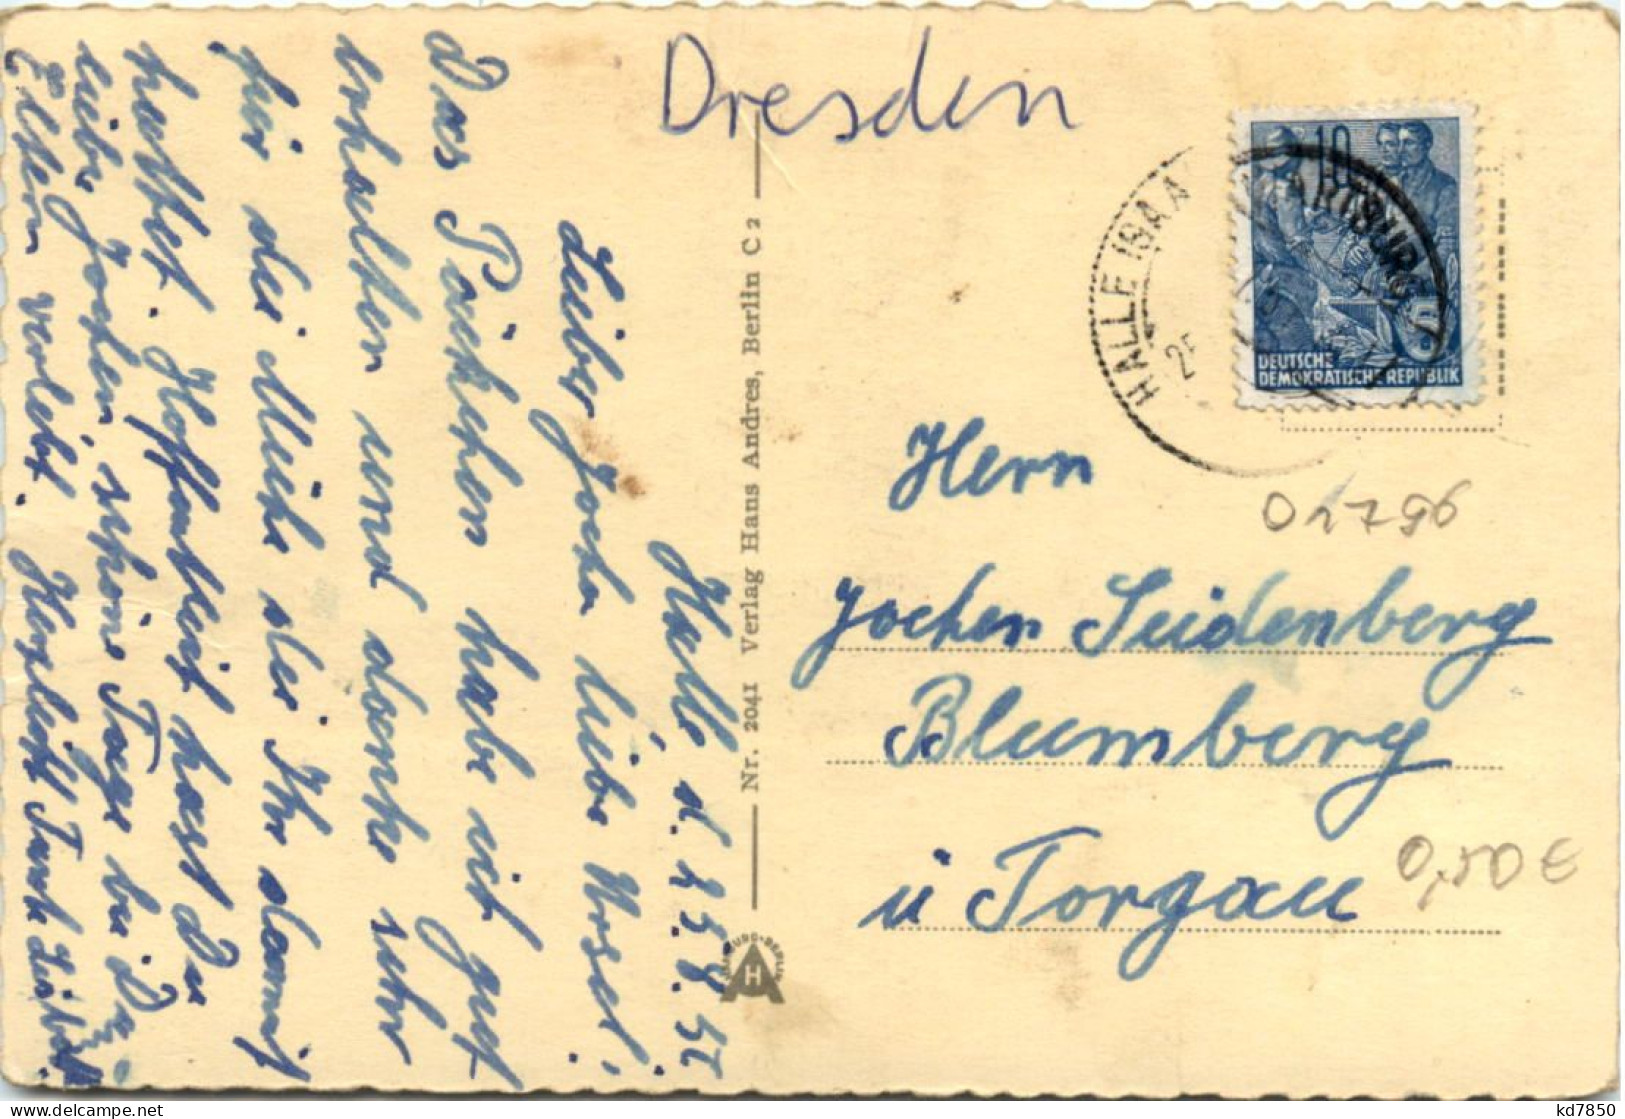 Dresden
Halle d. 25.8.55
Lieber Jochen liebe Ursel!
Das Päckchen habe ich gut
erhalten und danke sehr
für die Mühe die Ihr damit
hattet. Hoffentlich hast Du
lieber Jochen, schöne Tage bei D.
Eltern verlebt. Herzlichst Tante
Nr. 2041 Verlag Hans Andres, Berlin C 2
HAMBURG-BERLIN
AH
HALLE (SAA
25
10
DEUTSCHE
DEMOKRATISCHE REPUBLIK
Herrn
02796
Jochen Seidenberg
Blumberg
ü Torgau
0,50 €
kd7850